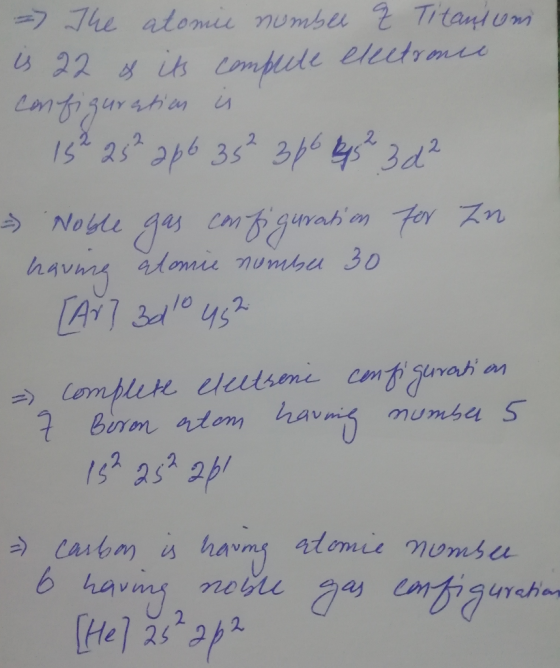 ⇒ The atomic number of Titanium
is 22 & its complete electronic
configuration is
1s² 2s² 2p⁶ 3s² 3p⁶ 4s² 3d²
⇒ Noble gas configuration for Zn
having atomic number 30
[Ar] 3d¹⁰ 4s²
⇒ complete electronic configuration
of Boron atom having number 5
1s² 2s² 2p¹
⇒ carbon is having atomic number
6 having noble gas configuration
[He] 2s² 2p²